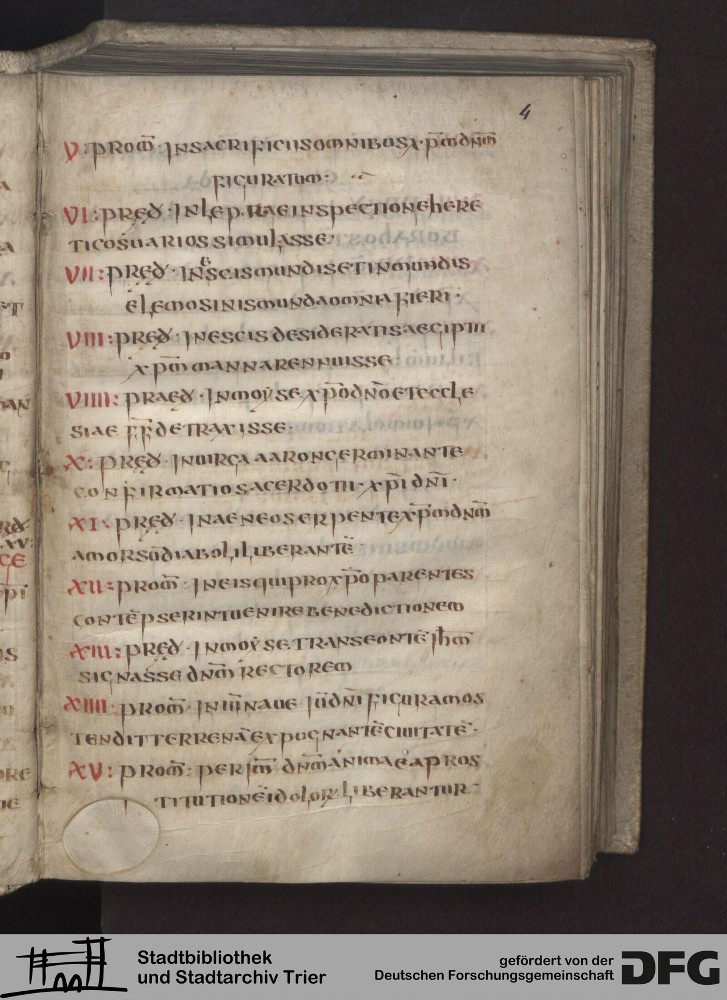 4
V: PROM̄ · IN SACRIFICIIS OMNIBUS XP̄M DN̄M
FIGURATUM:
VI: PRED · IN LEPRAE INSPECTIONE HERE
TICOS UARIOS SIMULASSE·
VII: PRED · IN ESCIS MUNDIS ET INMUNDIS
ELEMOSINIS MUNDA OMNIA FIERI·
VIII: PRED · IN ESCIS DESIDERATIS AEGIPTII
XP̄M MANNA RENNUISSE·
VIIII: PRAED · IN MOYSE XP̄O DN̄O ET ECCLE
SIAE F̄F̄ DETRAXISSE·
X: PRED · IN UIRGA AARON GERMINANTE
CONFIRMATIO SACERDOTII · XP̄I DN̄I·
XI· PRED · IN AENEO SERPENTE XP̄M DN̄M
A MORSŪ DIABOLI LIBERANTĒ
XII: PROM̄ · IN EIS QUI PRO XP̄O PARENTES
CONTĒPSERINT UENIRE BENEDICTIONEM
XIII: PRED · IN MOYSE TRANSEONTĒ IH̄M
SIGNASSE DN̄M RECTOREM
XIIII· PROM̄ · IN IĪI NAUE IŪ DN̄I FIGURA MOS
TENDIT TERRENĀ EXPUGNANTĒ CIUITATĒ·
XV: PROM̄: PER IH̄M DN̄M ANIMAE A PROS
TITUTIONĒ IDOLOR· LIBERANTUR·
Stadtbibliothek
und Stadtarchiv Trier
gefördert von der
Deutschen Forschungsgemeinschaft
DFG